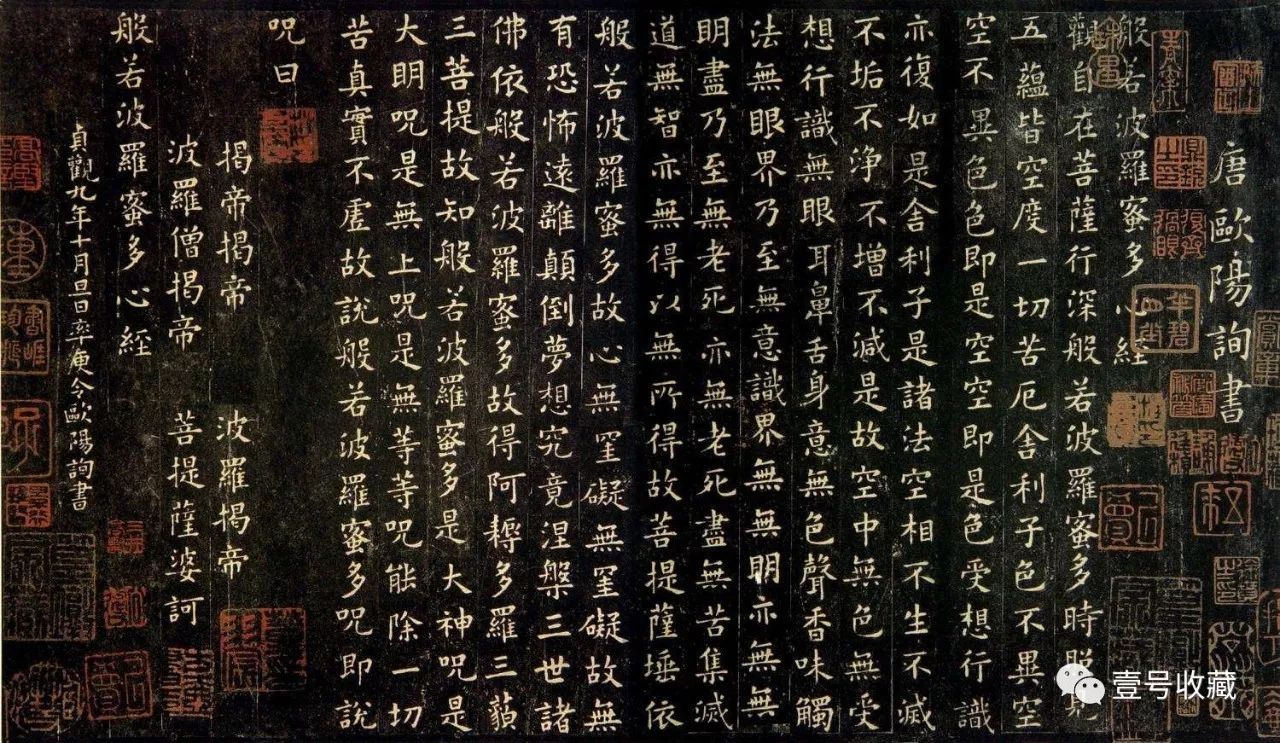 唐歐陽詢書
般若波羅蜜多心經
觀自在菩薩行深般若波羅蜜多時照見
五蘊皆空度一切苦厄舍利子色不異空
空不異色色即是空空即是色受想行識
亦復如是舍利子是諸法空相不生不滅
不垢不浄不增不減是故空中無色無受
想行識無眼耳鼻舌身意無色聲香味觸
法無眼界乃至無意識界無無明亦無無
明盡乃至無老死亦無老死盡無苦集滅
道無智亦無得以無所得故菩提薩埵依
般若波羅蜜多故心無罣礙無罣礙故無
有恐怖遠離顛倒夢想究竟涅槃三世諸
佛依般若波羅蜜多故得阿耨多羅三藐
三菩提故知般若波羅蜜多是大神咒是
大明咒是無上咒是無等等咒能除一切
苦真實不虛故說般若波羅蜜多咒即說
咒曰
揭帝揭帝 波羅揭帝
波羅僧揭帝 菩提薩婆訶
般若波羅蜜多心經
貞觀九年十月旦日率更令歐陽詢書
壹号收藏